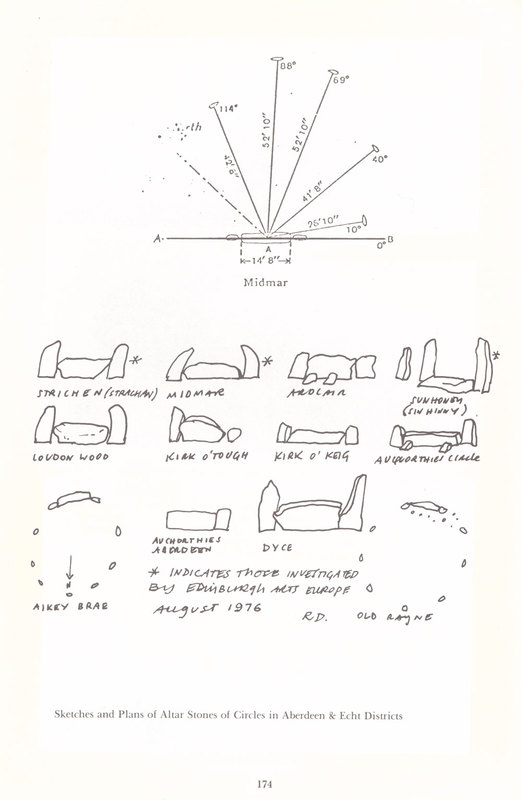 88°
69°
114°
th
52' 10"
52' 10"
42' 6"
40°
41' 8"
25' 10"
10°
A.
B
0°
A
14' 8"
Midmar
STRICHEN (STRACHAN) *
MIDMAR *
ARDLAIR
SUNHONEY *
(SIN HINNY)
LOUDON WOOD
KIRK O'TOUGH
KIRK O' KEIG
AUQUORTHIES CIRCLE
AUCHORTHIES
ABERDEEN
DYCE
* INDICATES THOSE INVESTIGATED
BY EDINBURGH ARTS EUROPE
AUGUST 1976
R.D.
AIKEY BRAE
OLD RAYNE
Sketches and Plans of Altar Stones of Circles in Aberdeen & Echt Districts
174